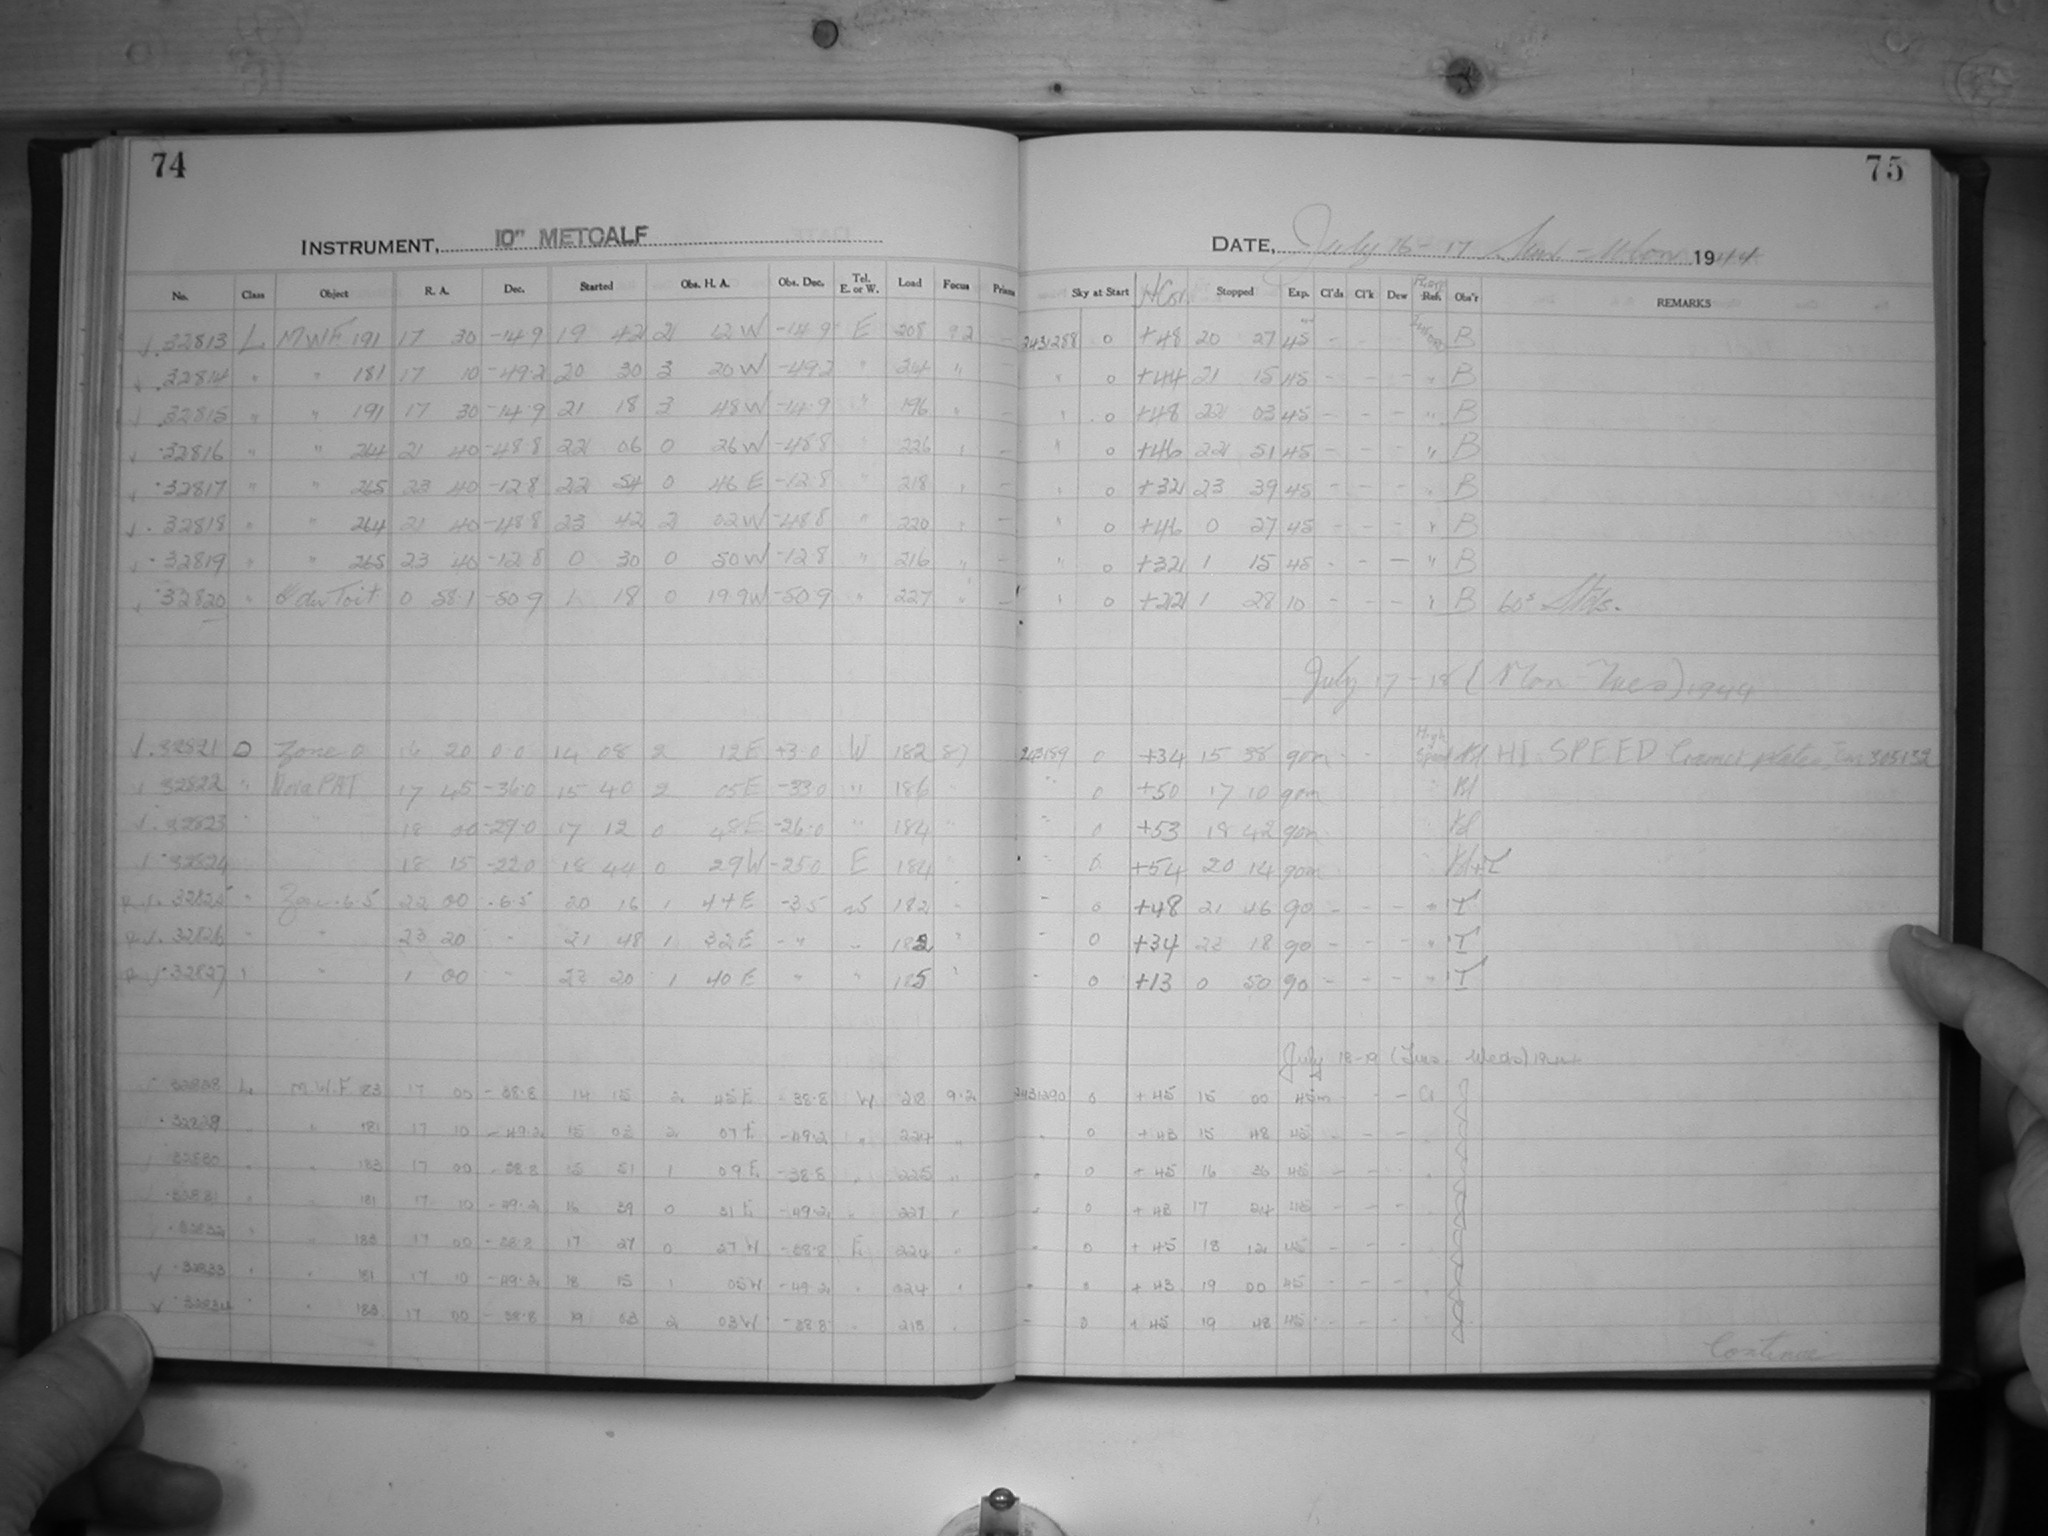 74
75
INSTRUMENT, 10" METCALF
DATE, July 16-17 Sun-Mon 1944
No. Class Object R. A. Dec. Started Obs. H. A. Obs. Dec. Tel. E. or W. Load Focus Prism Sky at Start HCor Stopped Exp. Cl'ds Cl'k Dew Ref. Obs'r REMARKS
32813 L MWF 191 17 30 -14.9 19 42 2 12 W -14.9 E 208 9.2 - 2431288 0 +48 20 27 45 - - B
32814 " " 181 17 10 -49.2 20 30 3 20 W -49.2 " 214 " " 0 +44 21 15 45 - - - " B
32815 " " 191 17 30 -14.9 21 18 3 48 W -14.9 " 196 " " 0 +48 22 03 45 - - - " B
32816 " " 264 21 40 -48.8 22 06 0 26 W -48.8 226 - " 0 +46 22 51 45 - - - " B
32817 " " 265 23 40 -12.8 22 54 0 46 E -12.8 " 218 - " 0 +32 23 39 45 - - - " B
32818 " " 264 21 40 -48.8 23 42 2 02 W -48.8 " 220 - " 0 +46 0 27 45 - - - " B
32819 " " 265 23 40 -12.8 0 30 0 50 W -12.8 " 216 " - " 0 +32 1 15 45 - - - " B
32820 " du Toit 0 58.1 -50.9 1 18 0 19.9 W -50.9 " 227 " - " 0 +22 1 28 10 - - - " B 60s
July 17-18 (Mon-Tues) 1944
32821 D Zone 0 16 20 0.0 14 08 2 12 E +3.0 W 182 0 +34 15 38 90m High Speed HI SPEED Cramer plates
32822 " Nova PAT 17 45 -36.0 15 40 2 05 E -33.0 " 186 " " 0 +50 17 10 90m
32823 " " 18 00 -29.0 17 12 0 48 E -26.0 " 184 " " 0 +53 18 42 90m
32824 18 15 -22.0 18 44 0 29 W -25.0 E 184 " " 0 +54 20 14 90m
32825 " Zone -6.5 22 00 -6.5 20 16 1 44 E -3.5 182 - " 0 +48 21 46 90 - - - " T
32826 " " 23 20 - 21 48 1 32 E " " 182 " " 0 +34 23 18 90 - - - " T
32827 " 1 00 - 23 20 1 40 E " " 185 " - 0 +13 0 50 90 - - - " T
July 18-19 (Tues. Weds) 1944
32828 L M.W.F. 183 17 00 -38.8 14 15 2 45 E -38.8 W 218 9.2 2431290 0 +45 15 00 45m - - -
32829 " " 181 17 10 -49.2 15 03 2 07 E -49.2 " 224 " " 0 +43 15 48 45 - - -
32830 " " 183 17 00 -38.8 15 51 1 09 E -38.8 " 225 " " 0 +45 16 36 45 - - -
32831 " " 181 17 10 -49.2 16 39 0 31 E -49.2 " 227 " " 0 +43 17 24 45 - - -
32832 " " 183 17 00 -38.8 17 27 0 27 W -38.8 E 224 " " 0 +45 18 12 45 - - -
32833 " " 181 17 10 -49.2 18 15 1 05 W -49.2 " 224 " " 0 +43 19 00 45 - - -
32834 " " 183 17 00 -38.8 19 03 2 03 W -38.8 " 213 " " 0 +45 19 48 45 - - -
Continue